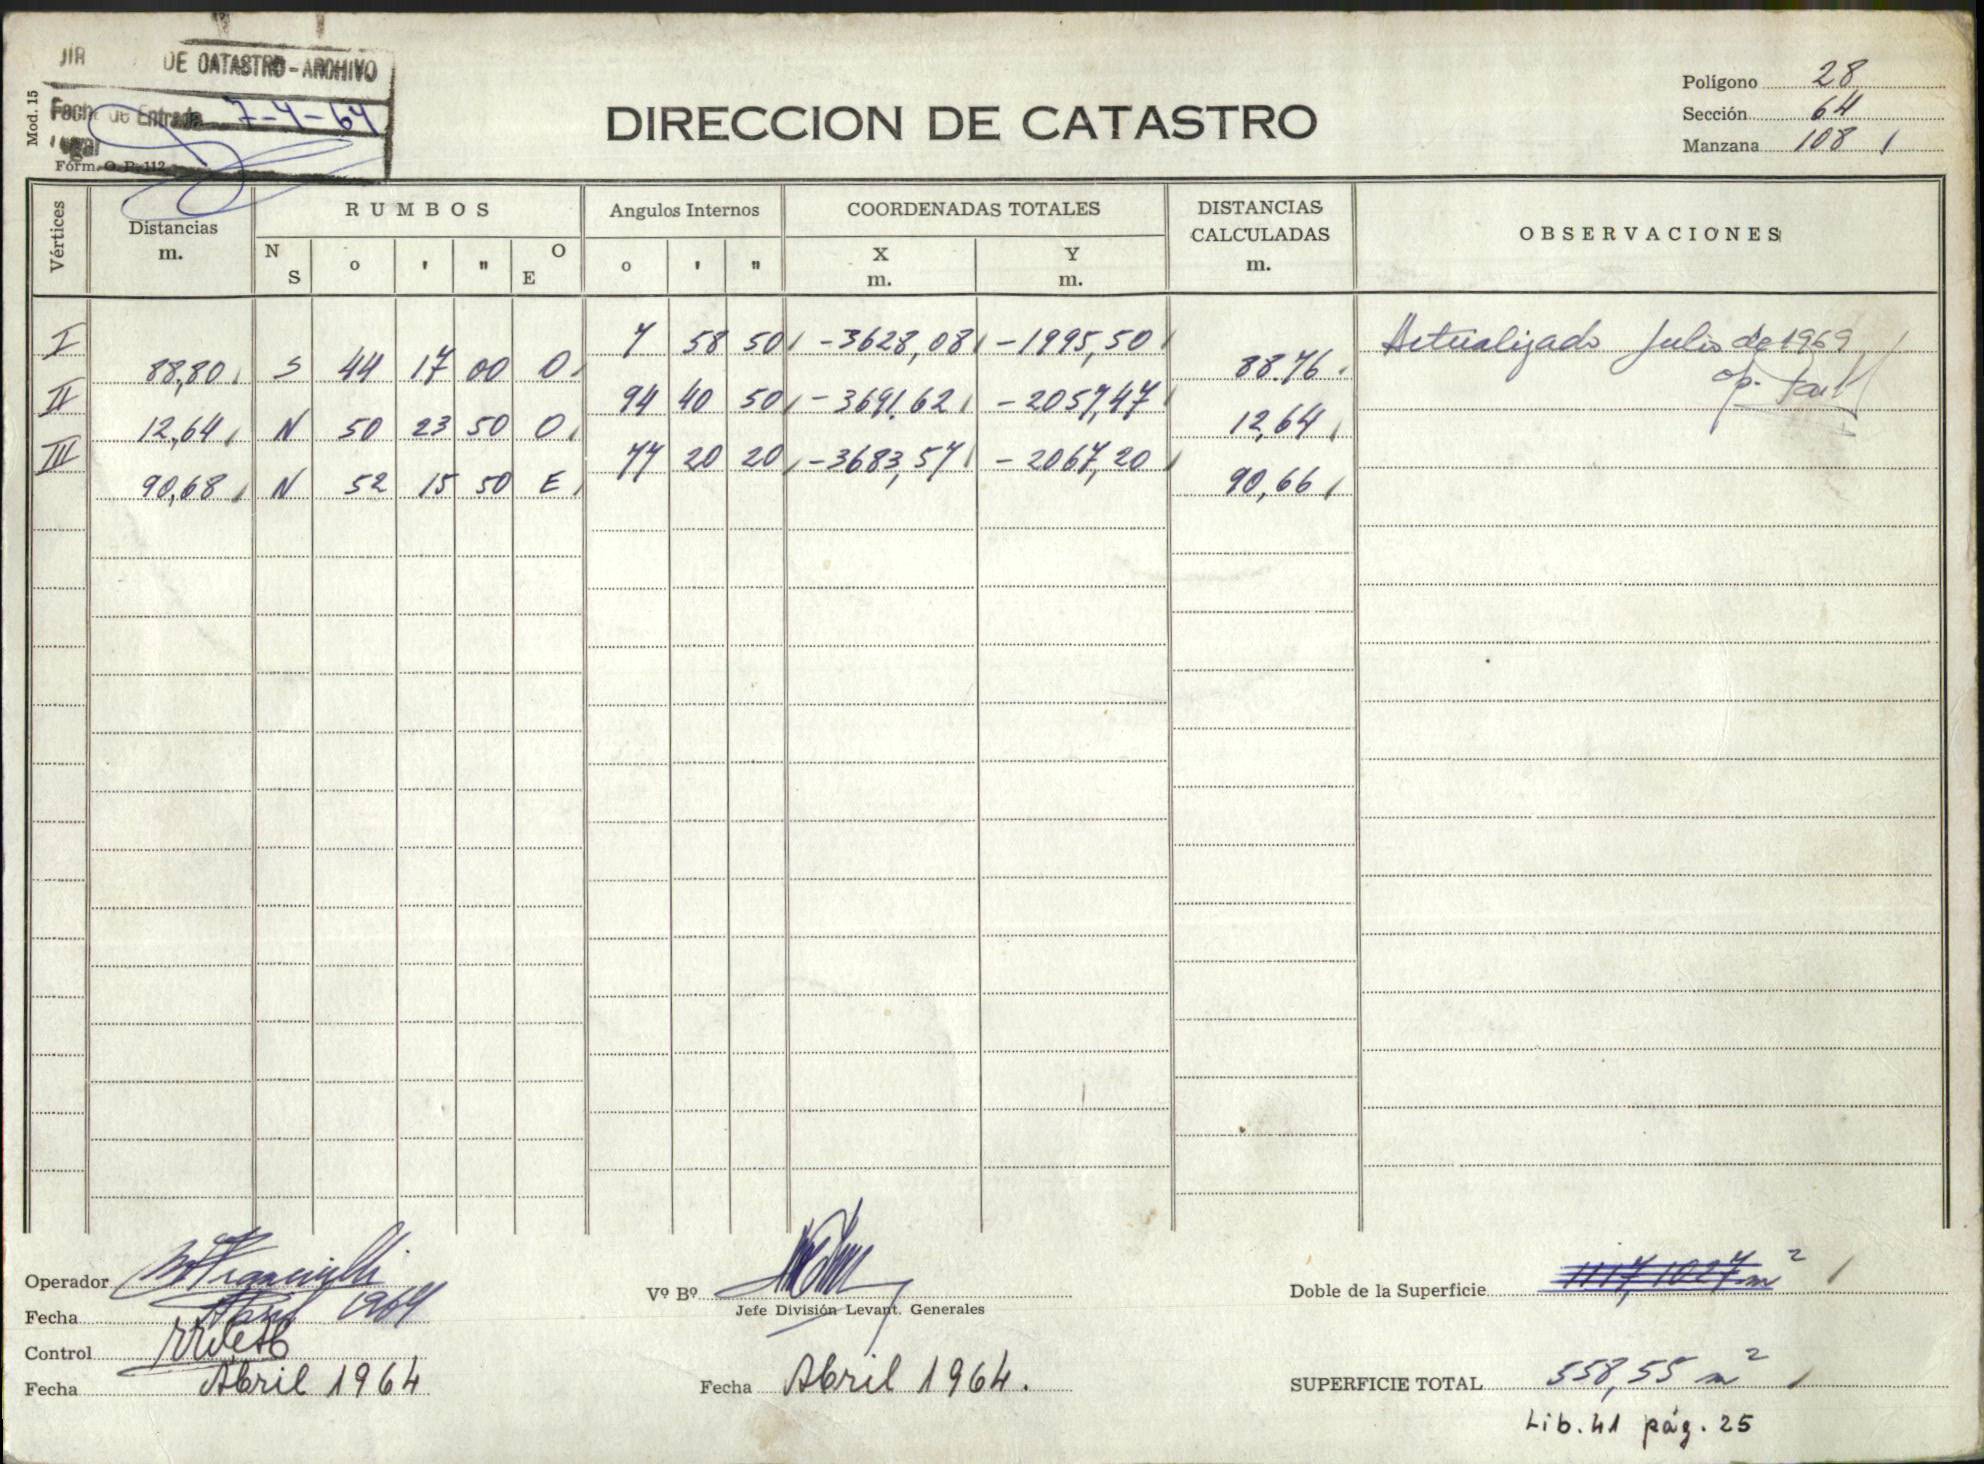 DE CATASTRO - ARCHIVO
Fecha de Entrada 7-4-64
Mod. 15
Form. O. P. 112
DIRECCION DE CATASTRO
Polígono 28
Sección 64
Manzana 108
Vértices
Distancias m.
RUMBOS
N S o ' " O E
Angulos Internos
o ' "
COORDENADAS TOTALES
X m. Y m.
DISTANCIAS CALCULADAS m.
OBSERVACIONES
I 7 58 50 -3628,08 -1995,50 Actualizado Julio de 1969
88,80 S 44 17 00 O 88.76 op.
II 94 40 50 -3691,62 -2057,47
12,64 N 50 23 50 O 12,64
III 77 20 20 -3683,57 -2067,20
90,68 N 52 15 50 E 90,66
Operador
Fecha Abril 1964
Control
Fecha Abril 1964
Vº Bº
Jefe División Levant. Generales
Fecha Abril 1964.
Doble de la Superficie 1117,1027 m²
SUPERFICIE TOTAL 558,55 m²
Lib. 41 pág. 25